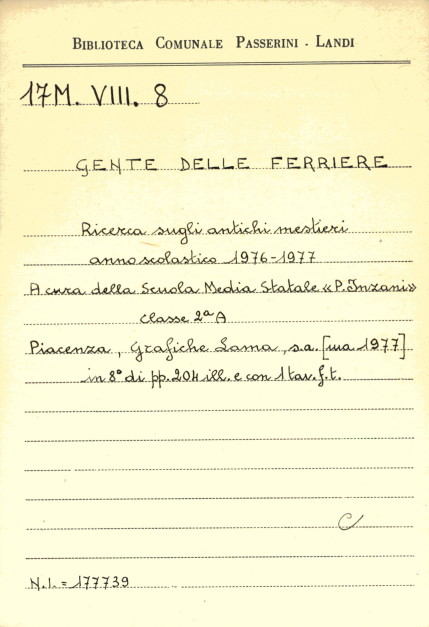 BIBLIOTECA COMUNALE PASSERINI - LANDI
17M. VIII. 8
GENTE DELLE FERRIERE
Ricerca sugli antichi mestieri
anno scolastico 1976-1977
A cura della Scuola Media Statale «P. Inzani»
Classe 2ª A
Piacenza, Grafiche Lama, s.a. [ma 1977]
in 8° di pp. 204 ill. e con 1 tav. f. t.
C
N.I. = 177739